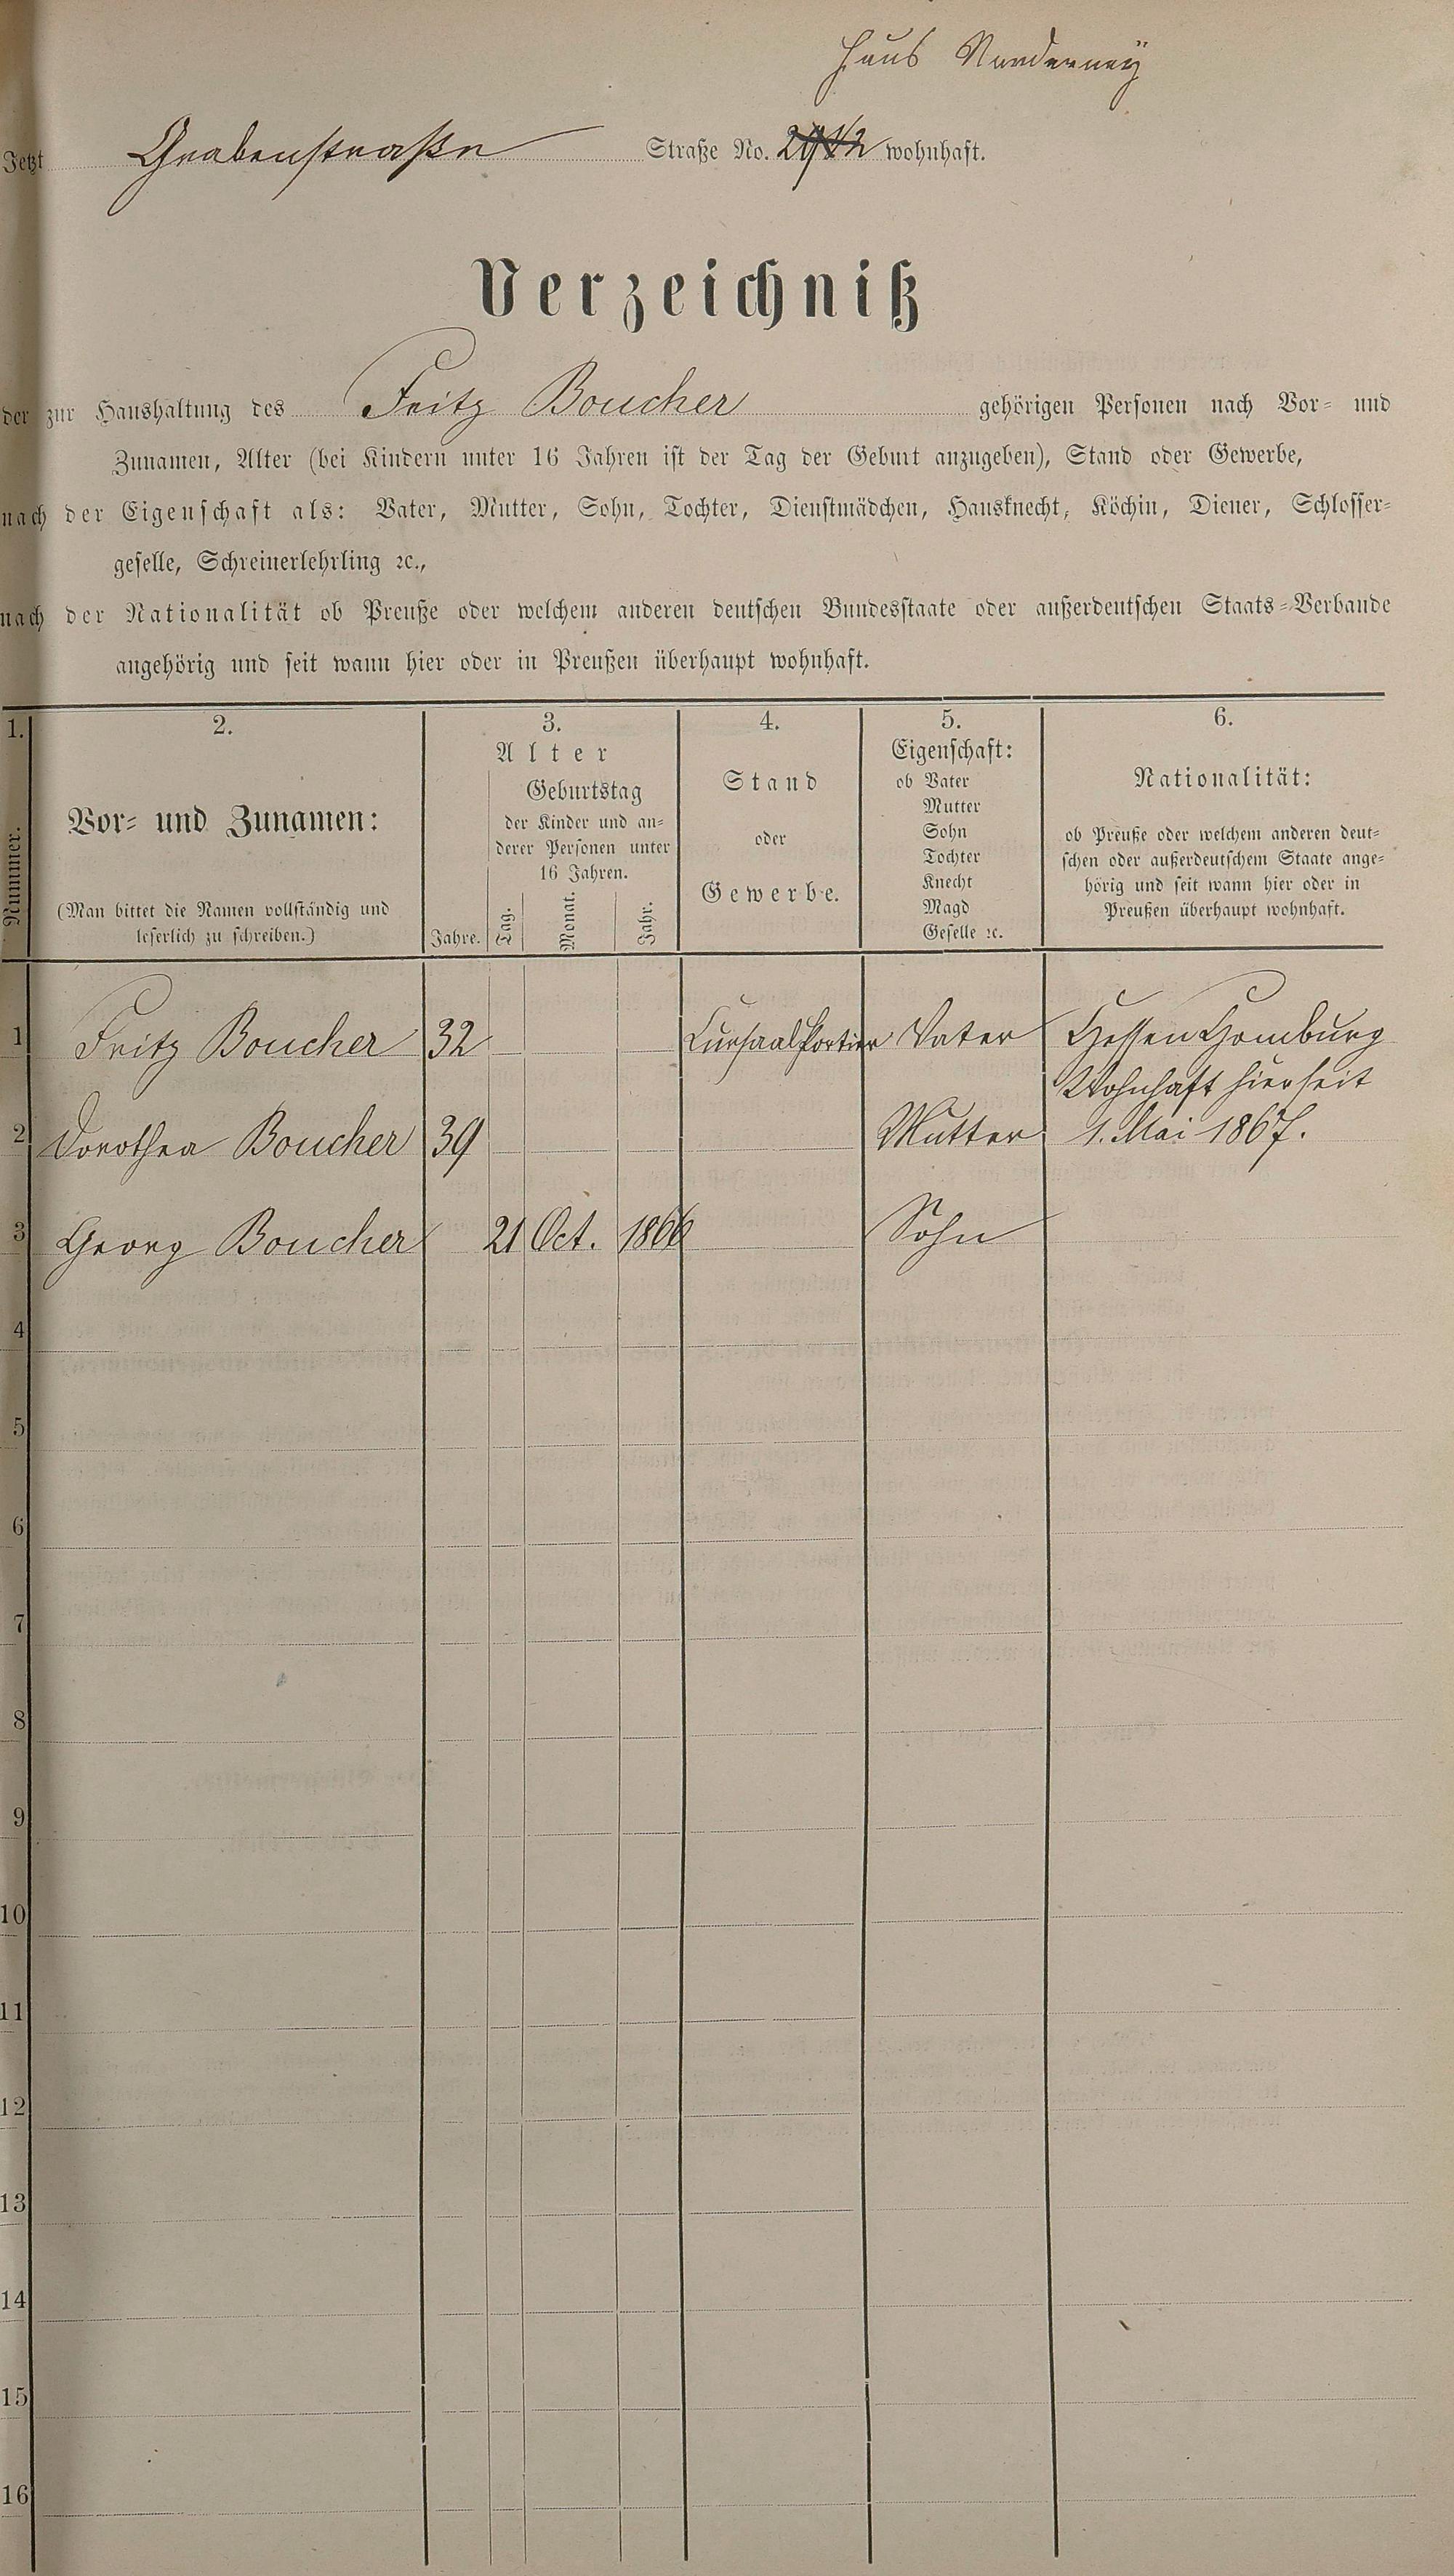 Haus Norderney
Jetzt Grabenstraße Straße No. wohnhaft.
Verzeichniß
der zur Haushaltung des Fritz Boucher gehörigen Personen nach Vor- und
Zunamen, Alter (bei Kindern unter 16 Jahren ist der Tag der Geburt anzugeben), Stand oder Gewerbe,
nach der Eigenschaft als: Vater, Mutter, Sohn, Tochter, Dienstmädchen, Hausknecht, Köchin, Diener, Schlosser-
geselle, Schreinerlehrling ꝛc.,
nach der Nationalität ob Preuße oder welchem anderen deutschen Bundesstaate oder außerdeutschen Staats-Verbande
angehörig und seit wann hier oder in Preußen überhaupt wohnhaft.
1.
Nummer.
2.
Vor- und Zunamen:
(Man bittet die Namen vollständig und
leserlich zu schreiben.)
3.
Alter
Jahre.
Geburtstag
der Kinder und an-
derer Personen unter
16 Jahren.
Tag. Monat. Jahr.
4.
Stand
oder
Gewerbe.
5.
Eigenschaft:
ob Vater
Mutter
Sohn
Tochter
Knecht
Magd
Geselle ꝛc.
6.
Nationalität:
ob Preuße oder welchem anderen deut-
schen oder außerdeutschem Staate ange-
hörig und seit wann hier oder in
Preußen überhaupt wohnhaft.
1 Fritz Boucher 32 CursaalPortier Vater Hessen Homburg
Wohnhaft hier seit
2 Dorothea Boucher 39 Mutter 1. Mai 1867.
3 Georg Boucher 21 Oct. 1866 Sohn
4
5
6
7
8
9
10
11
12
13
14
15
16